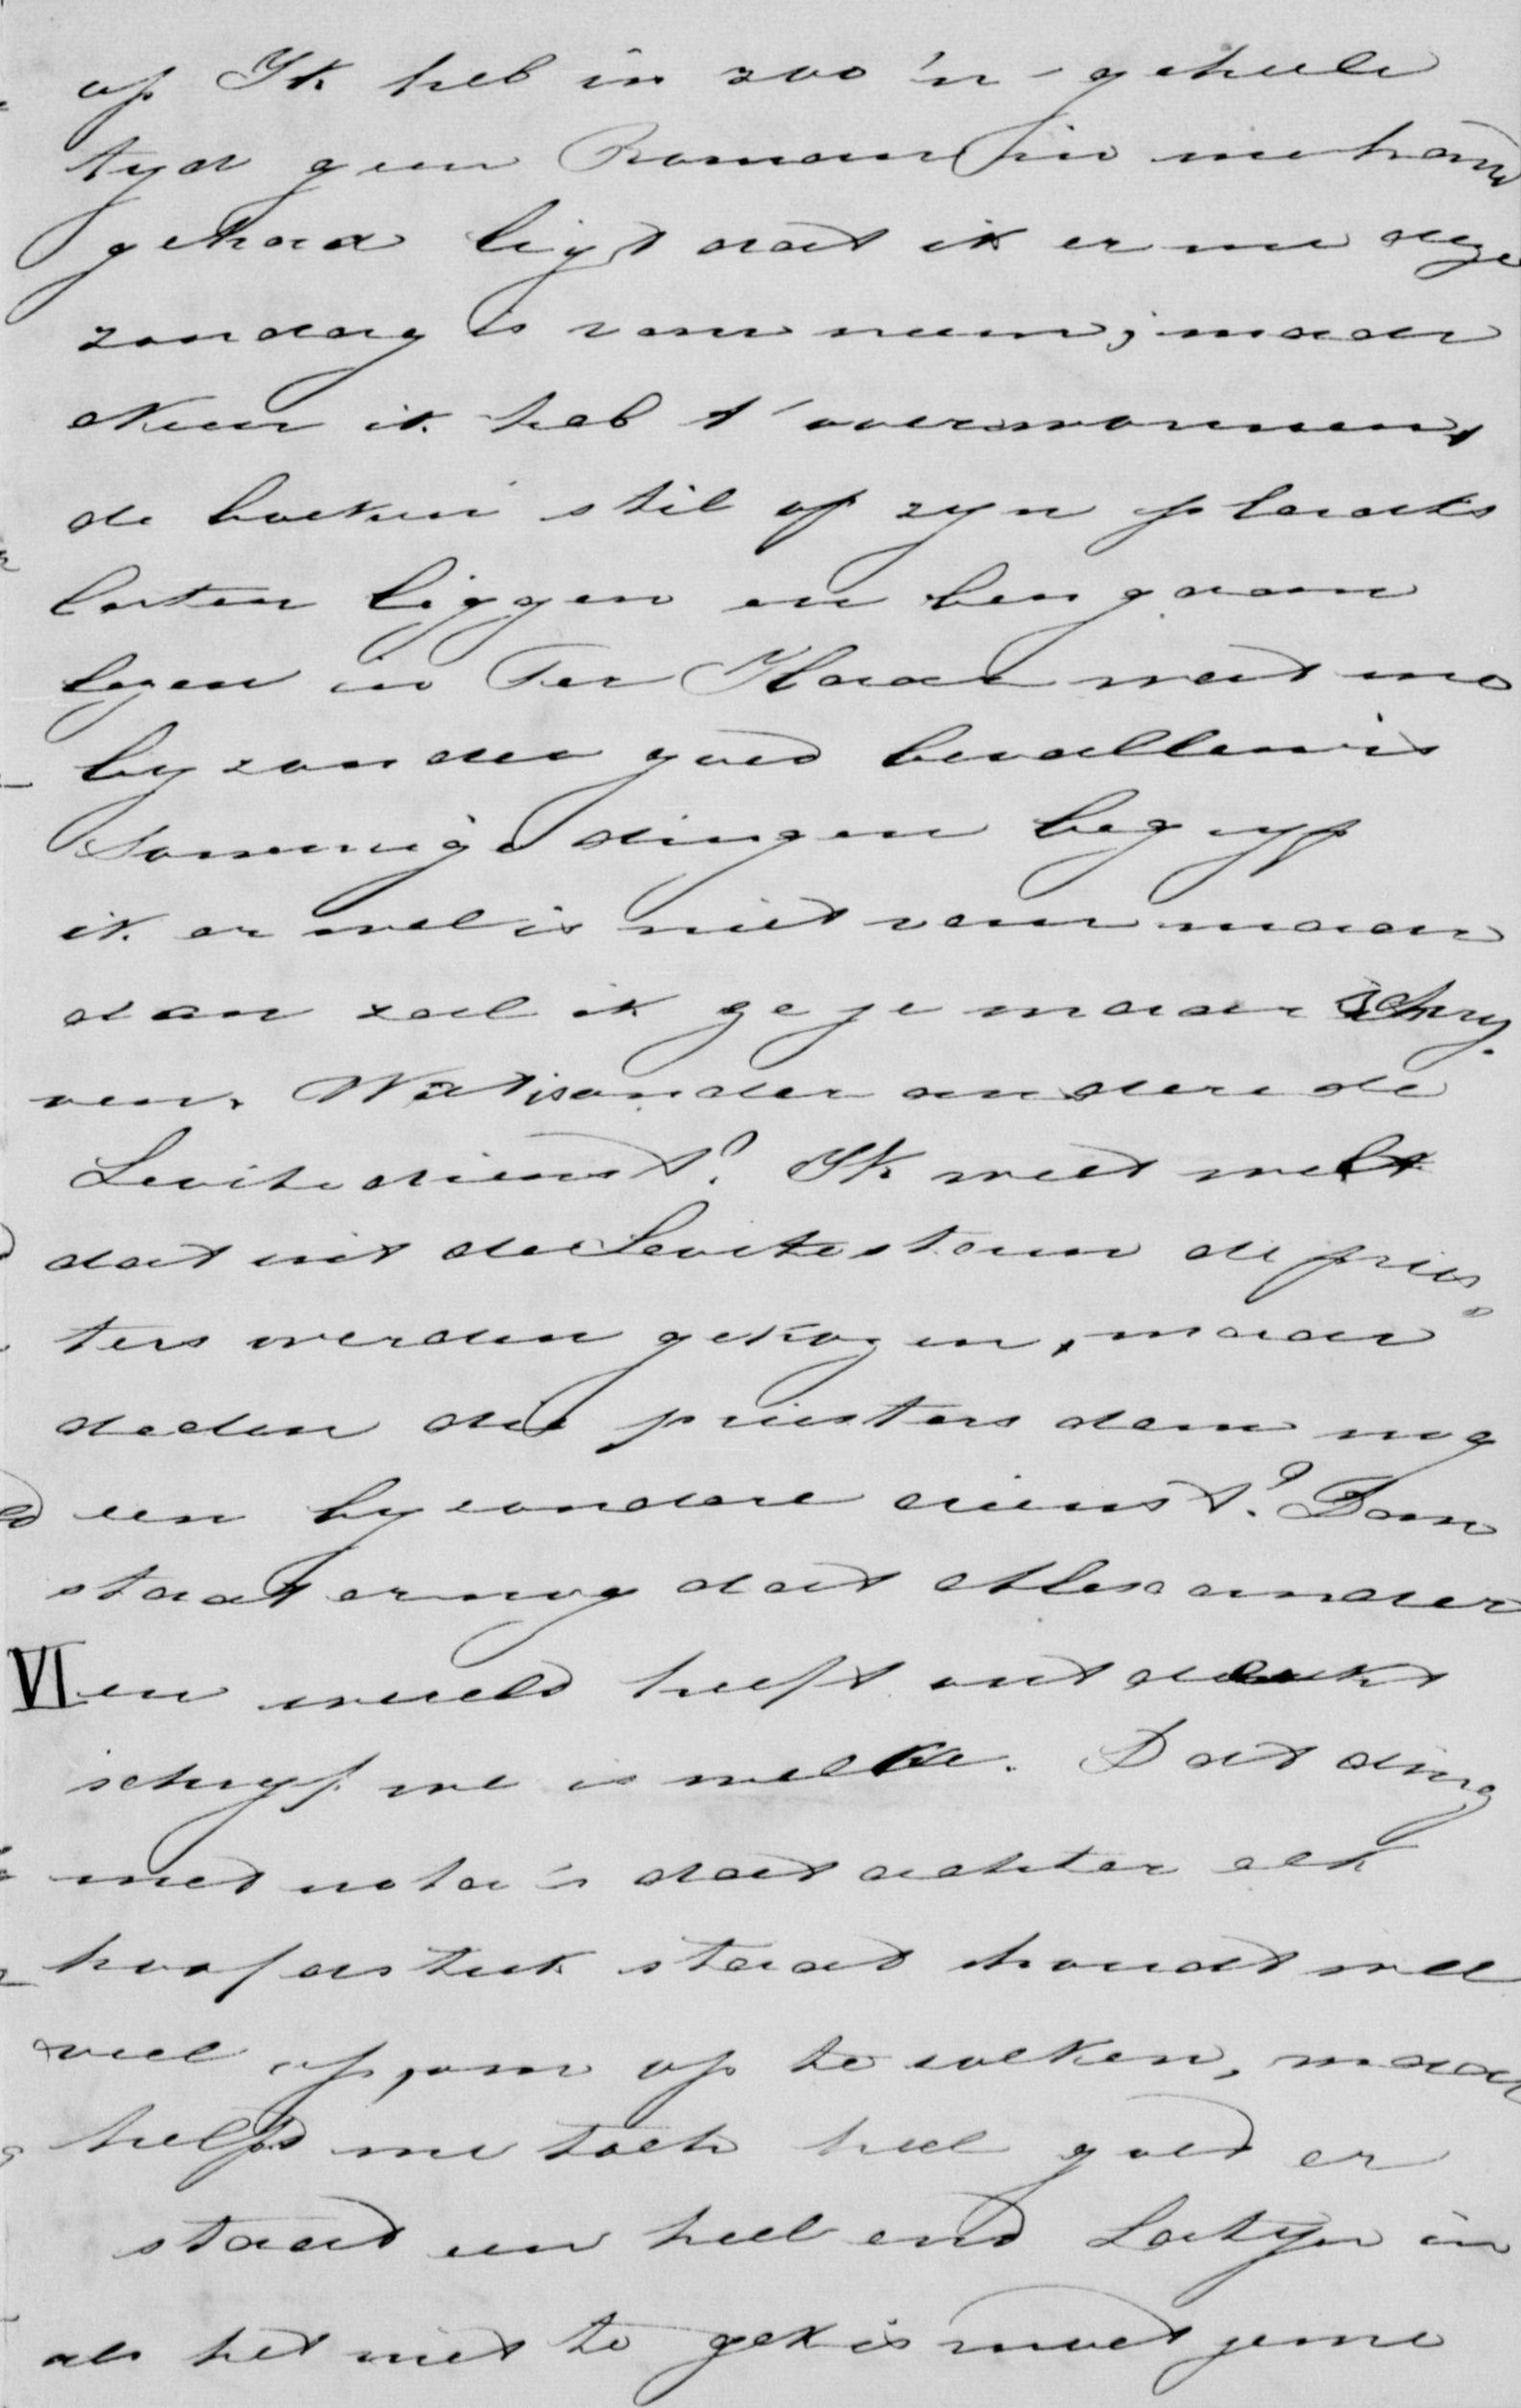 op Ik heb in zoo 'n geheele
tyd geen Roman in me hand
gehad ligt dat ik er nu deze
zondag is van neem; maar
Neen ik heb t' overwonnen,
de boeken stil op zyn plaats
laten liggen en ben gaan
lezen in Ter Haar wat me
byzonder goed bevallen is
Sommige dingen begryp
ik er wel is niet van maar
dan zal ik ze je maar schry.
ven. Wat is onder andere de
Levitedienst? Ik weet wel
dat uit de Levitestam de pries
ters werden gekozen, maar
deden die priesters dan nog
een byzondere dienst? Dan
staat er nog dat Alexander
VI een wereld heeft ontdekt
schryf me is welke. Dat ding
met nota's dat achter elk
hoofdstuk staat houdt wel
veel op, om op te zoeken, maar
helpt me toch heel goed er
staat een heel end Latyn in
als het niet te gek is moet je me